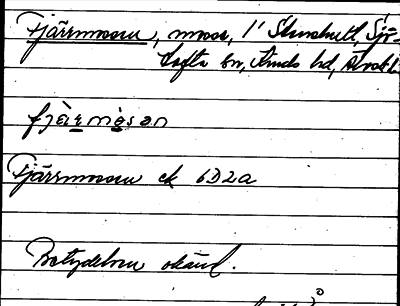 Fjärrmossen, mosse, 1' Stenshult, Sjö-
tofta sn, Kinds hd, Älvsb. l.
fjärmọ̀sən
Fjärrmossen ek 6D2a
Betydelsen okänd.